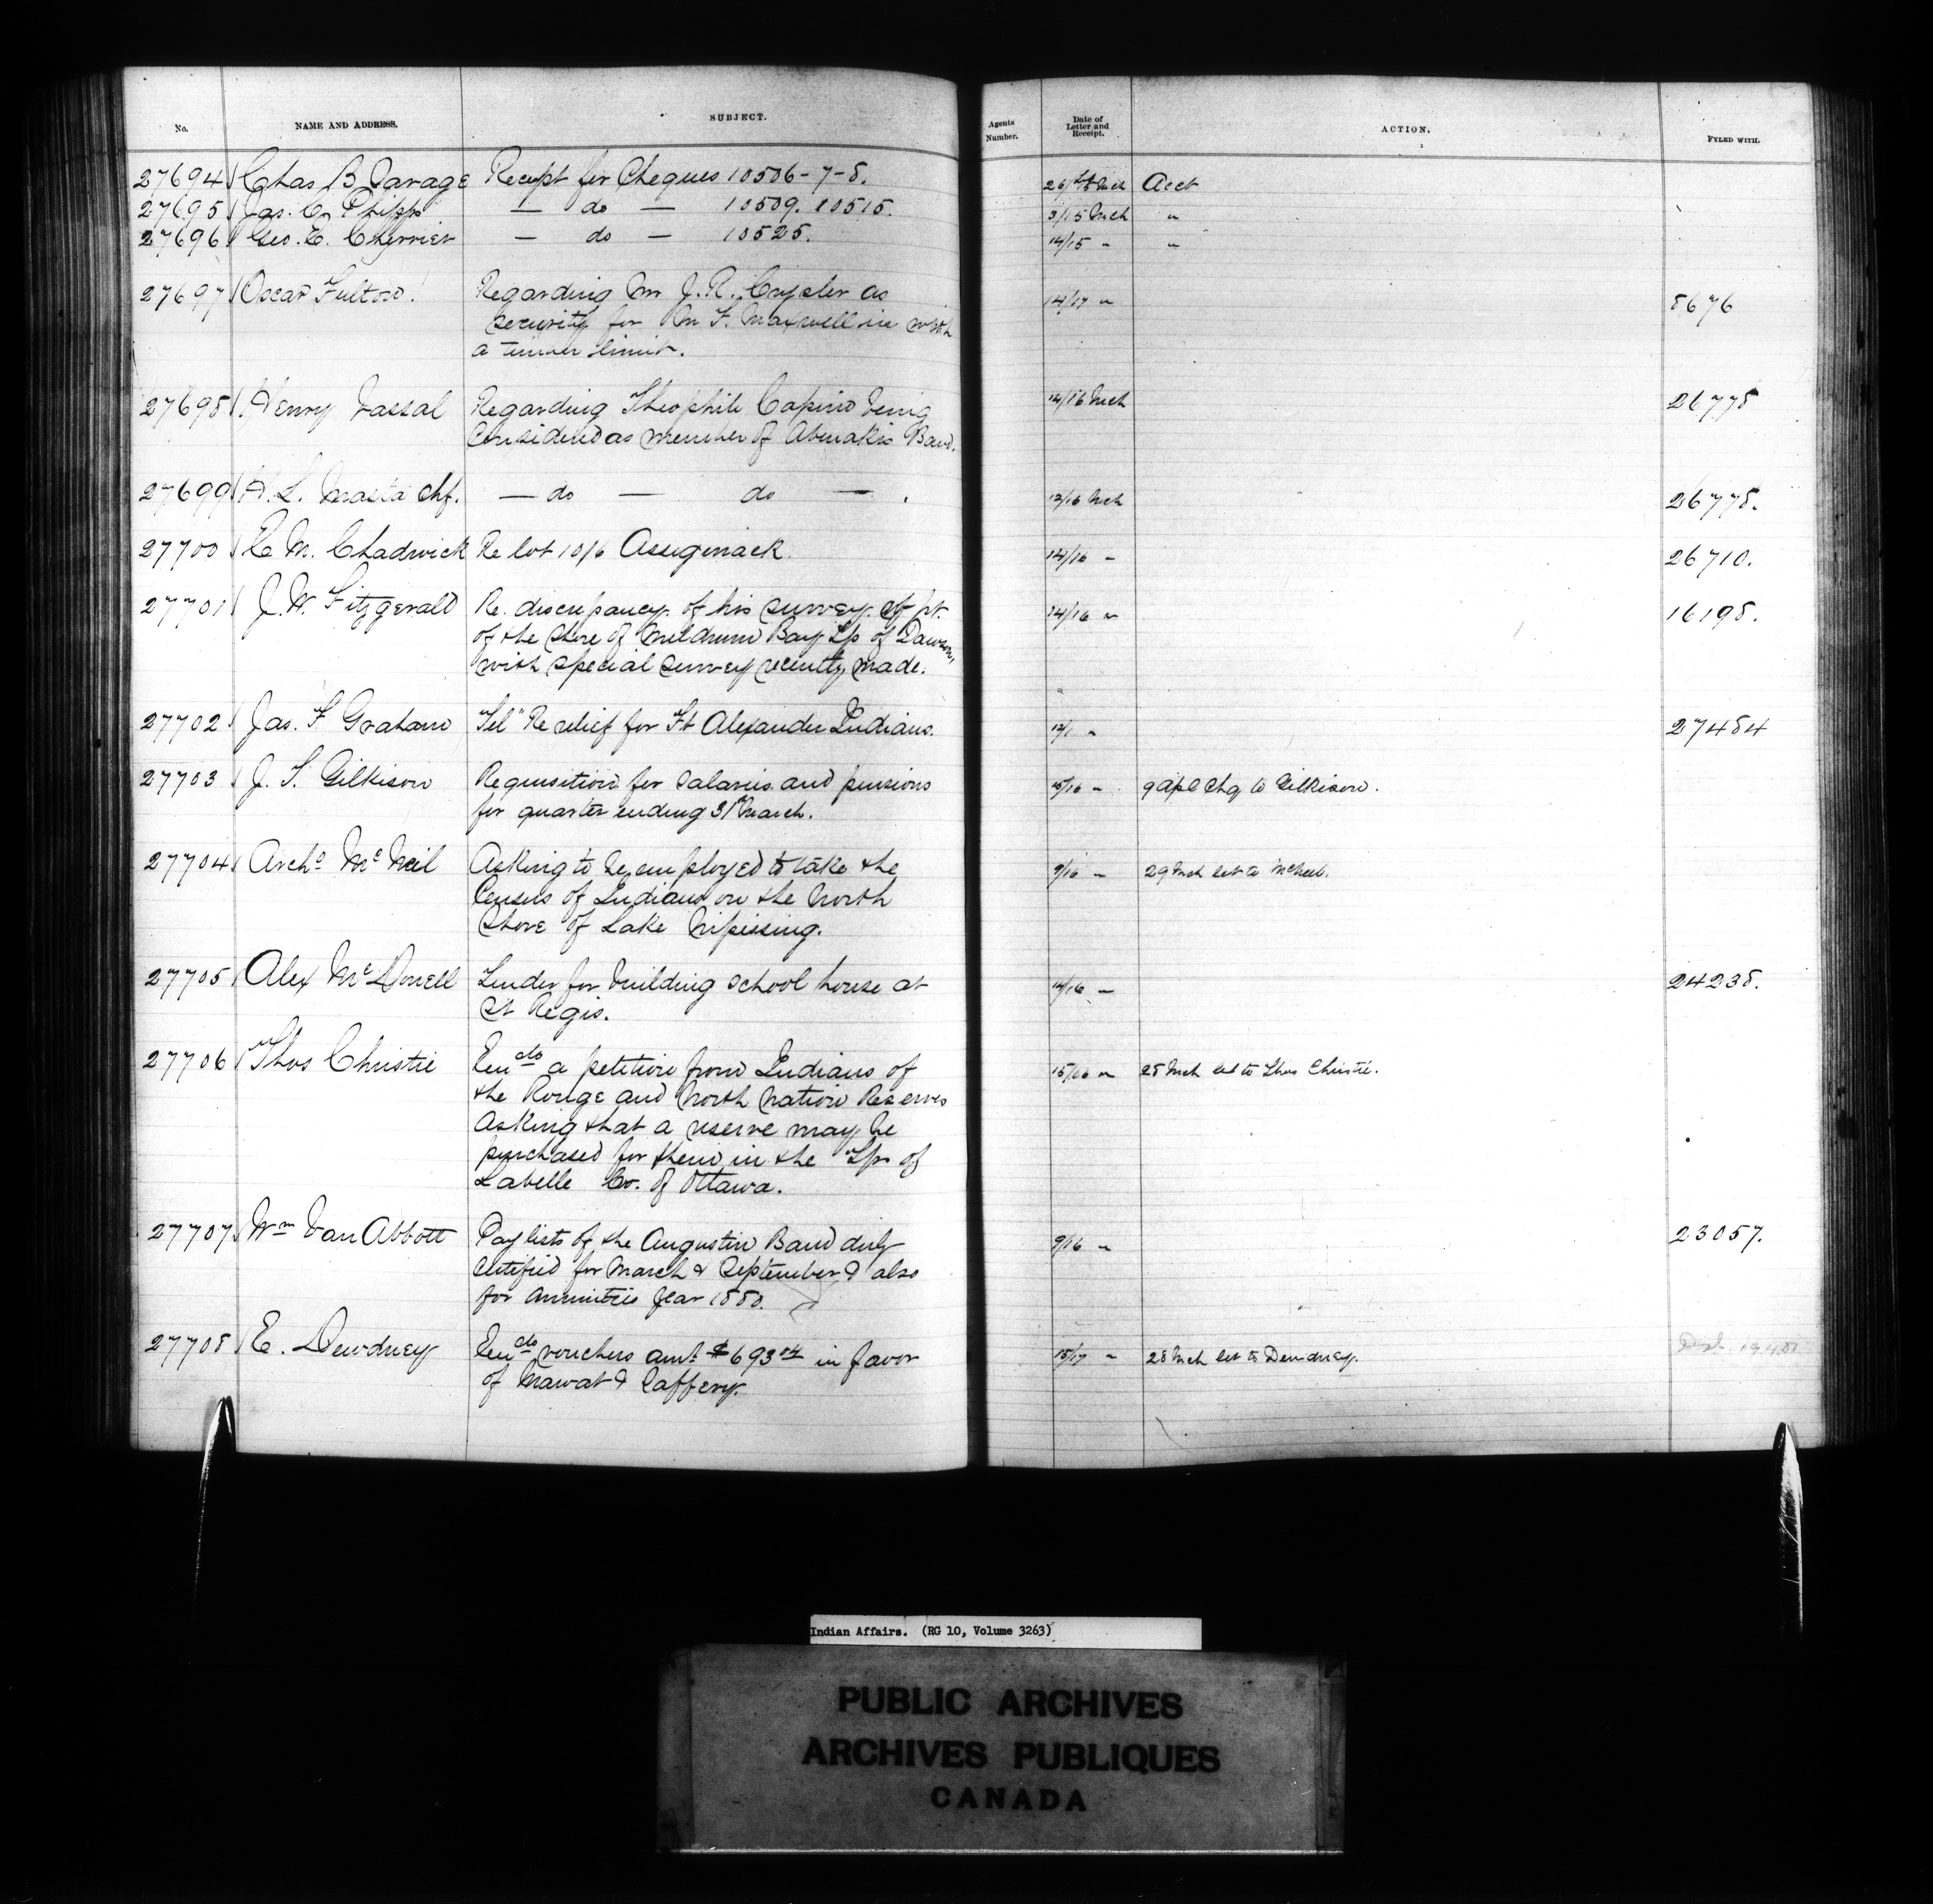 No. NAME AND ADDRESS. SUBJECT. Agents Number. Date of Letter and Receipt. ACTION. FYLED WITH.
27694 Chas B Savage Receipt for Cheques 10506-7-8. Mch Acct
27695 Jas. C. Phipps — do — 10509. 10515. 3/15 Mch "
27696 Geo. E. Cherrier — do — 10525. 14/15 " "
27697 Oscar Fulton. Regarding Mr J. R. Crysler as 14/17 " 8676
security for Mr F. Maxwell in with
a timber limit.
27698 Henry Vassal Regarding Theophile Capino being 14/16 Mch 26778
considered as member of Abenakis Band.
27699 H. L. Masta Chf. — do — do — . 12/16 Mch 26778.
27700 E M. Chadwick Re lot 10/6 Assiginack 14/16 " 26710.
27701 J. W. Fitzgerald Re. discrepancy of his survey of pt. 14/16 " 16198.
of the shore of Meldrum Bay Tp of Dawson,
with special survey recently made.
27702 Jas. F Graham "Tel" Re relief for Ft Alexander Indians. " 27484
27703 J. T. Gilkison Requisition for salaries and pensions 15/16 " 9 Apl Chq to Gilkison.
for quarter ending 31st March.
27704 Archd McNeil Asking to be employed to take the 9/16 " 29 Mch let to McNeil.
Census of Indians on the North
Shore of Lake Nipissing.
27705 Alex McDonell Tender for building school house at 14/16 " 24238.
St Regis.
27706 Thos Christie a petition from Indians of 15/16 " 28 Mch let to Thos Christie.
the Rouge and North Nation Reserves
asking that a reserve may be
purchased for them in the Tp of
Labelle Co. of Ottawa.
27707 Wm Van Abbott Paylists of the Augustin Band duly 9/16 " 23057.
certified for March & September & also
for annuities year 1880.
27708 E. Dewdney vouchers amt $693 04 in favor 15/17 " 28 Mch let to Dewdney.
of Mawat & Caffery.
Indian Affairs. (RG 10, Volume 3263)
PUBLIC ARCHIVES
ARCHIVES PUBLIQUES
CANADA